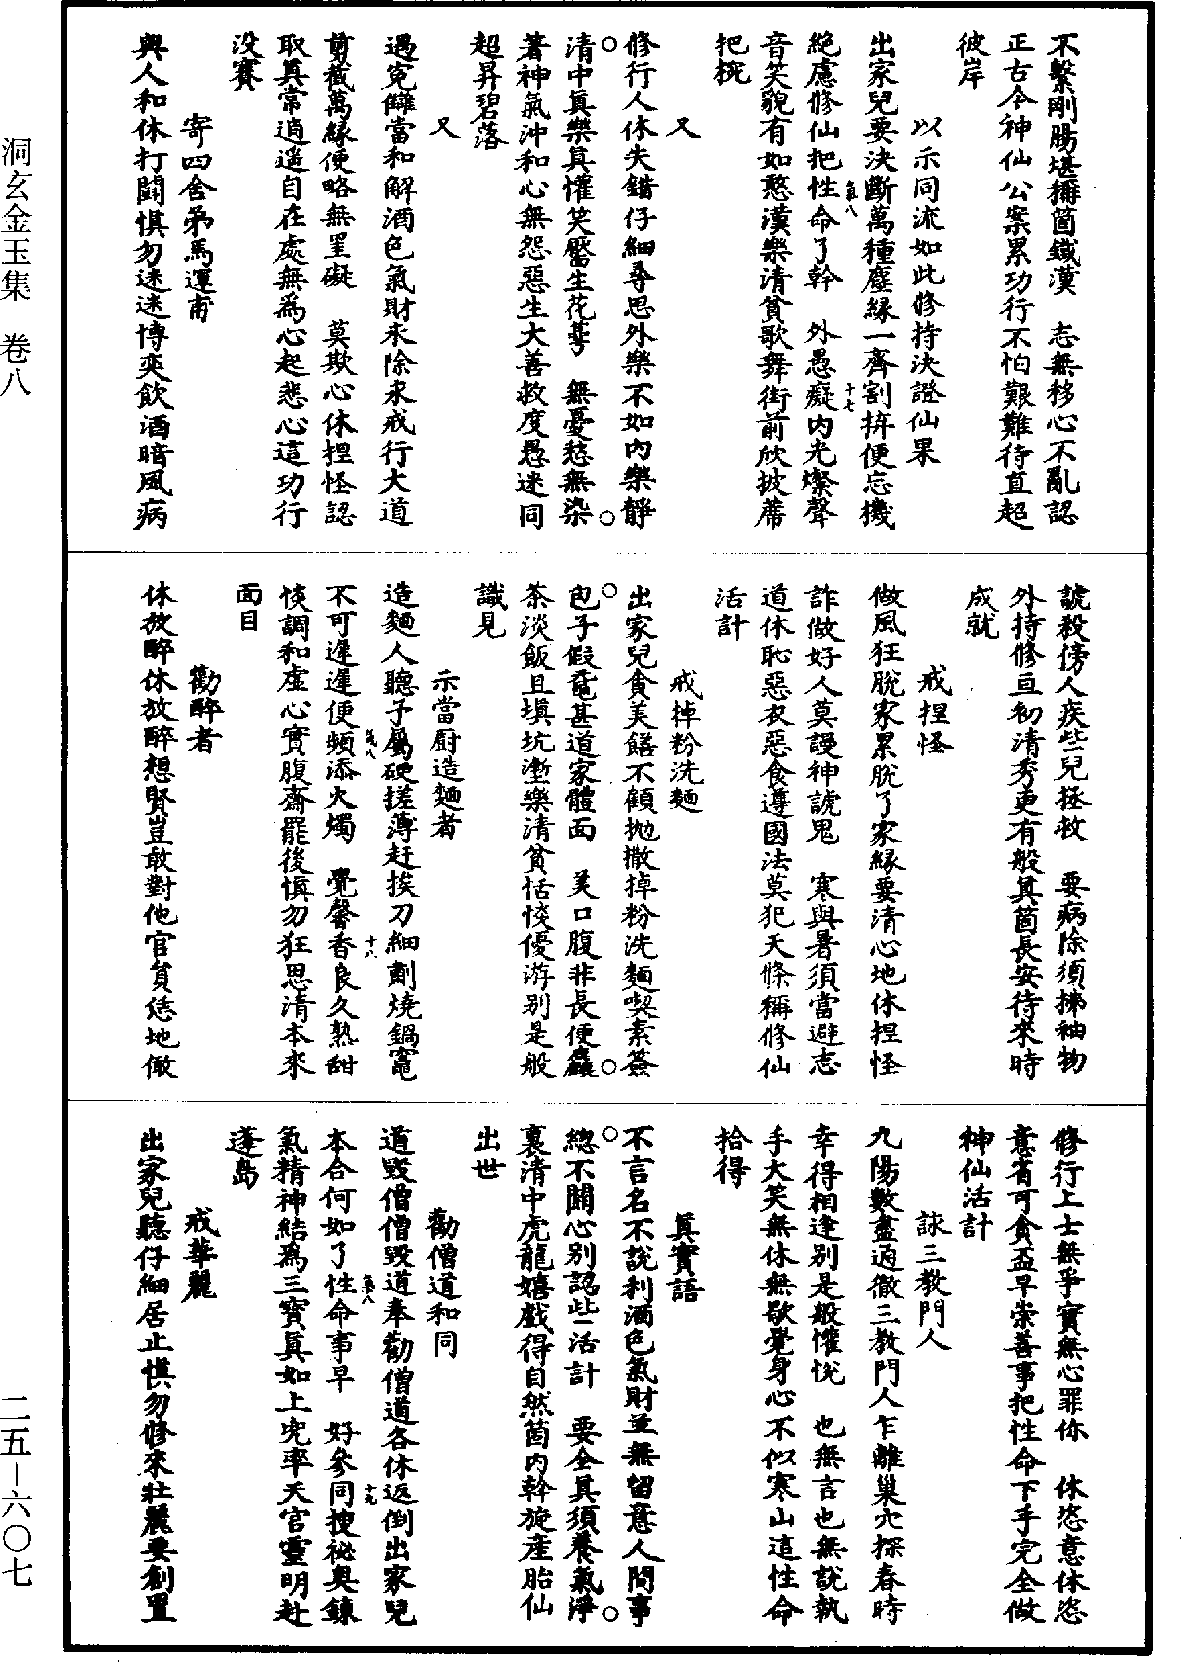 不繫剛腸堪擗箇鐵漢　志無移心不亂認
正古今神仙公案累功行不怕艱難待直超
彼岸
以示同流如此修持決證仙果
出家兒要決斷萬種塵緣一齊割捹便忘機
絶慮修仙把性命了幹　外愚癡内光燦聲
音笑貌有如憨漢樂清貧歌舞街前欣披蓆
把椀
又
修行人休失錯仔細尋思外樂不如内樂靜
清中真樂真懽笑靨生花萼　無憂愁無染
著神氣沖和心無怨惡生大善救度愚迷同
超昇碧落
又
遇冤讎當和解酒色氣財永除永戒行大道
剪截萬緣便略無罣礙　莫欺心休捏怪認
取真常逍遥自在處無爲心起悲心這功行
没賽
寄四舍弟馬運甫
與人和休打鬬慎勿迷迷博奕飲酒暗風病
諕殺傍人疾些兒拯救　要病除須拂袖物
外持修亘初清秀更有般真箇長安待來時
成就
戒捏怪
做風狂脱家累脱了家緣要清心地休捏怪
詐做好人莫謾神諕鬼　寒與暑須當避志
道休恥惡衣惡食遵國法莫犯天條稱修仙
活計
戒掉粉洗麵
出家兒貪美饍不顧抛撒掉粉洗麵喫素簽
包子假黿甚道家體面　美口腹非長便麤
茶淡飯且填坑塹樂清貧恬惔優游别是般
識見
示當厨造麵者
造麵人聽子屬硬搓薄赶挨刀細劃燒鍋竈
不可遲遲便頻添火燭　覺馨香良久熟甜
惔調和虚心實腹齋罷後慎勿狂思清本來
面目
勸醉者
休放醉休放醉想賢豈敢對他官負恁地做
修行上士無爭實無心罪你　休恣意休恣
意省可貪盃早崇善事把性命下手完全做
神仙活計
詠三教門人
九陽數盡通徹三教門人乍離巢穴探春時
幸得相逢别是般懽悅　也無言也無説執
手大笑無休無歇覺身心不似寒山這性命
拾得
真實語
不言名不説利酒色氣財並無留意人間事
總不關心别認些活計　要全真須養氣淨
裏清中虎龍嬉戲得自然箇内幹旋産胎仙
出世
勸僧道和同
道毀僧僧毀道奉勸僧道各休返倒出家兒
本合何如了性命事早　好參同搜祕奥鍊
氣精神結爲三寶真如上兜率天宫靈明赴
蓬島
戒華麗
出家兒聽仔細居止慎勿修來壯麗要創置
洞玄金玉集　卷八
二五—六〇七